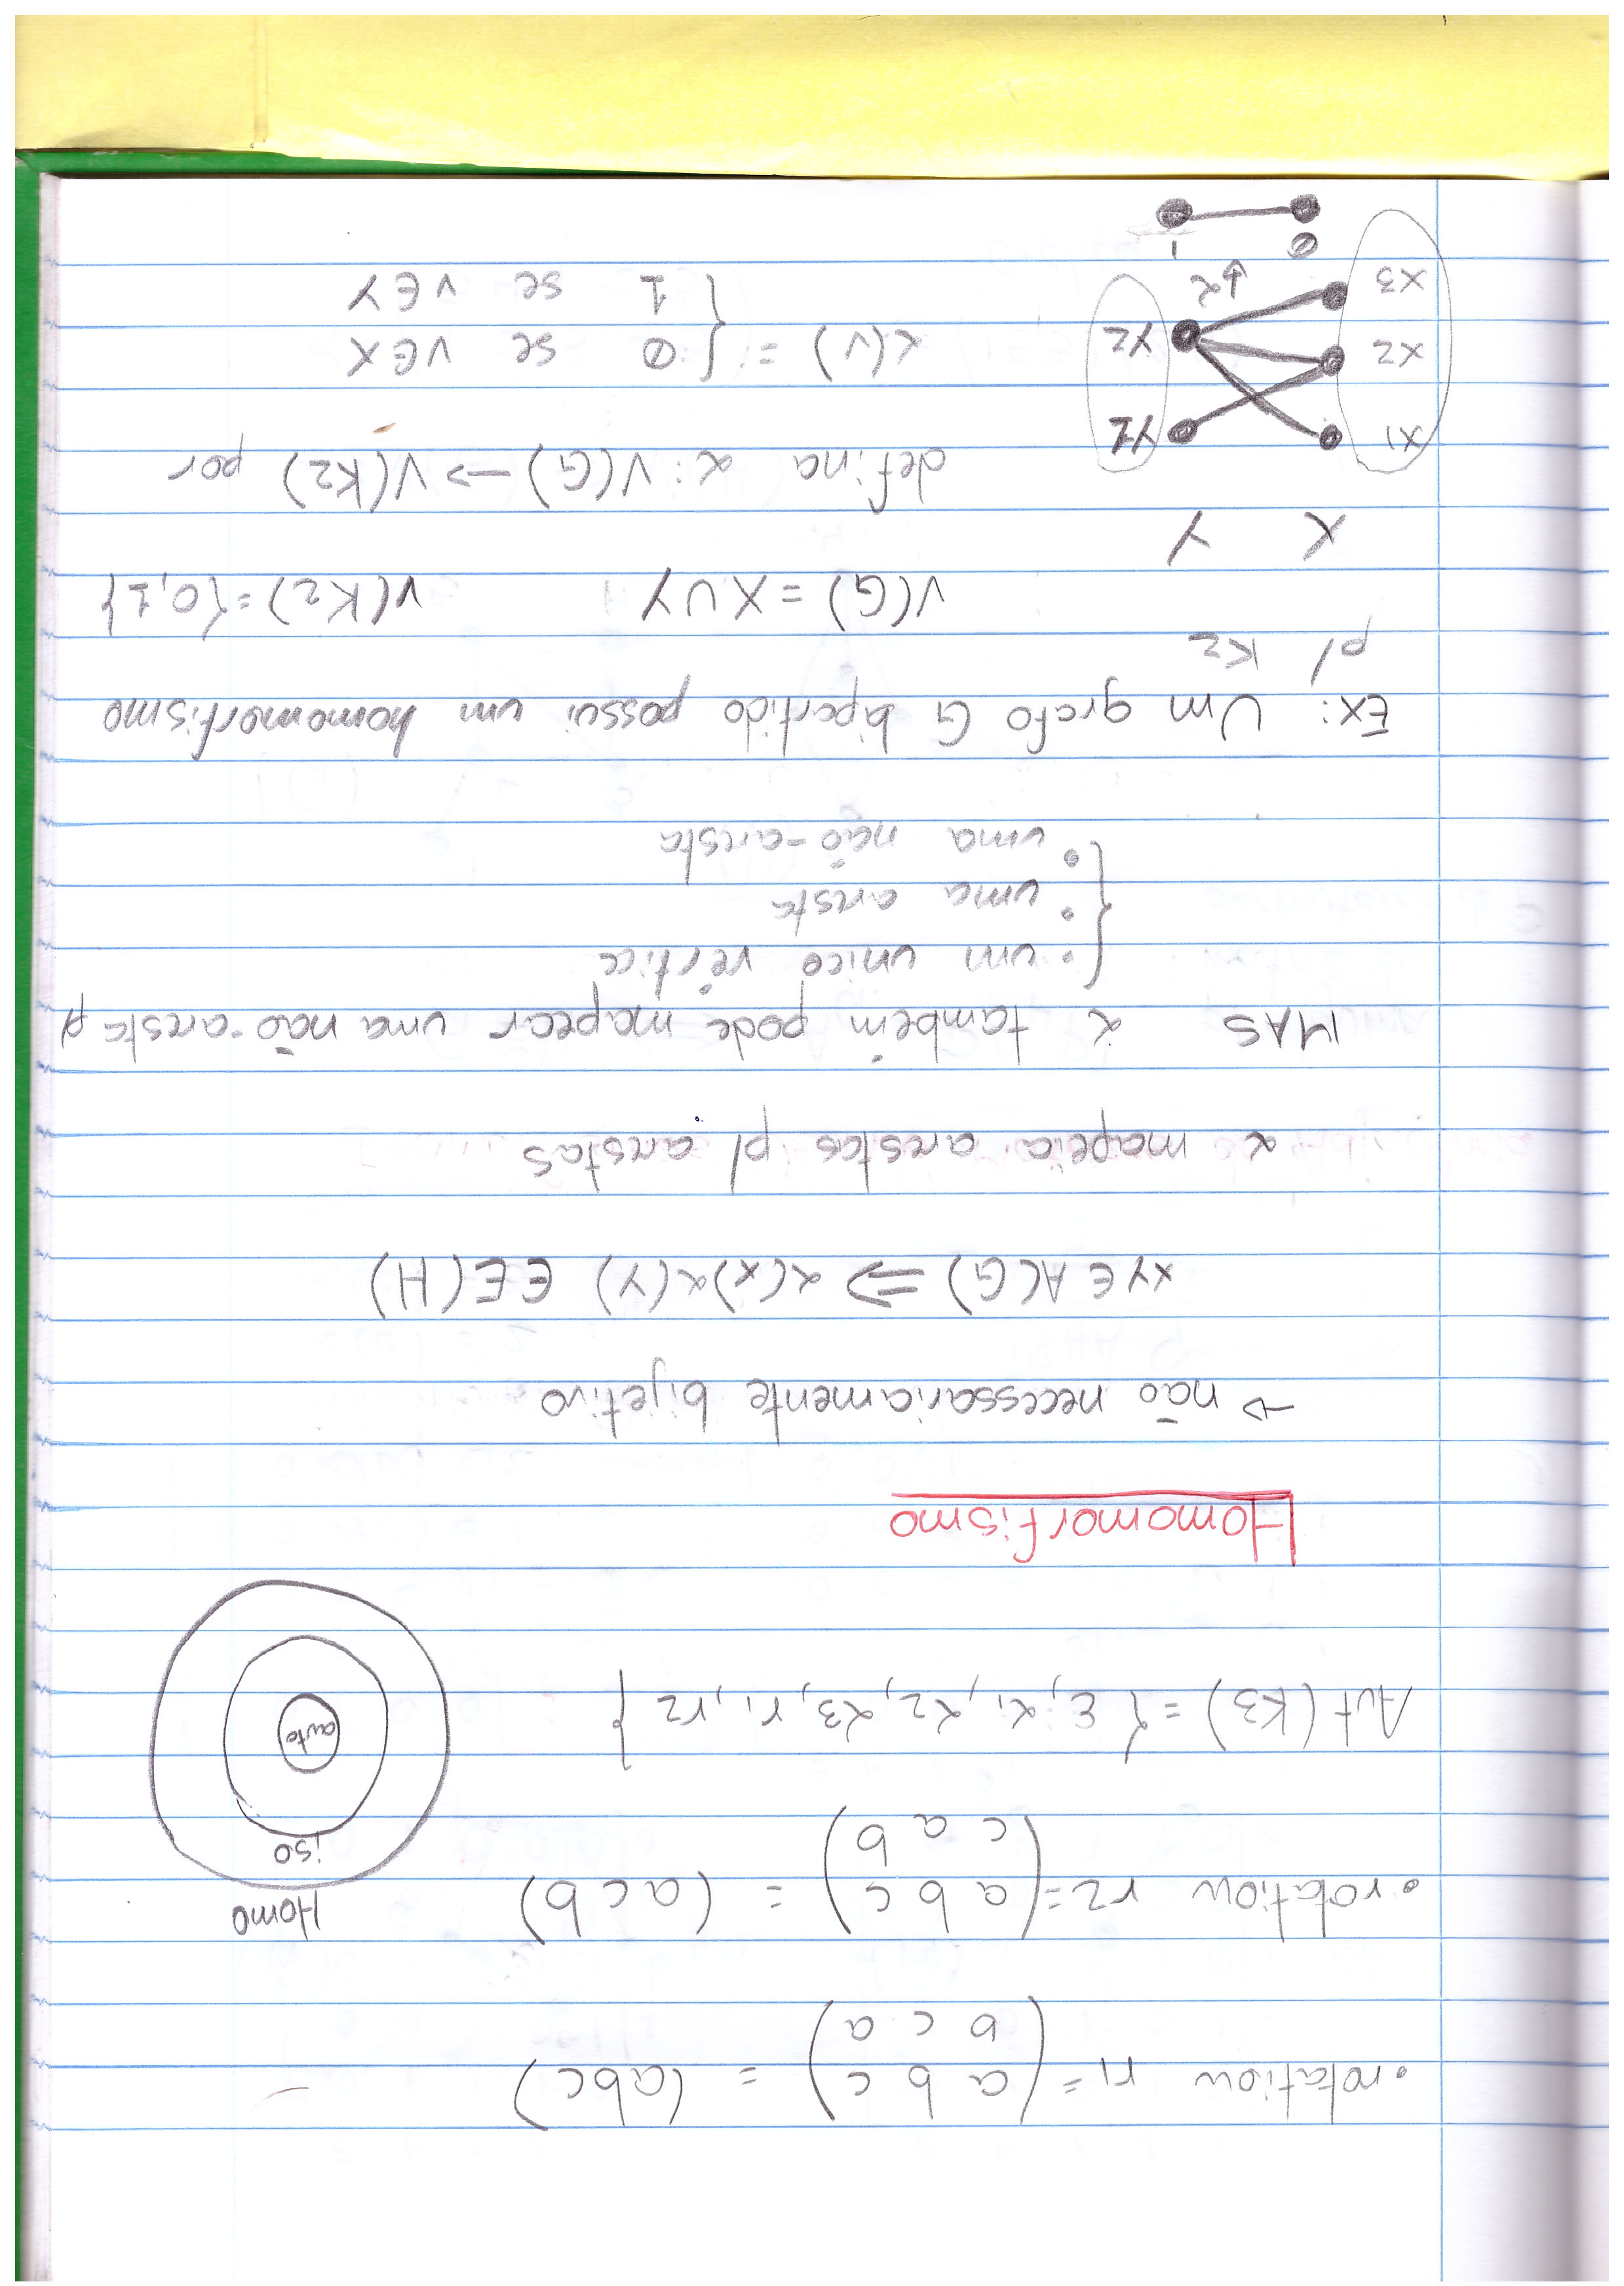 . rotation r1 = ( a b c ) = (abc)
b c a
. rotation r2 = ( a b c ) = (a c b)
c a b
Homo
iso
auto
Aut(K3) = { ε, α1, α2, α3, r1, r2 }
Homomorfismo
→ não necessariamente bijetivo
xy ∈ A(G) ⇒ α(x)α(y) ∈ E(H)
α mapeia arestas p/ arestas
MAS α também pode mapear uma não-aresta p/
{ • um unico vértice
• uma aresta
• uma não-aresta
Ex: Um grafo G bipartido possui um homomorfismo
p/ K2
V(G) = X ∪ Y v(K2) = {0,1}
X Y
defina α: V(G) → V(K2) por
x1 y1
x2 y2
x3
α(v) = { 0 se v ∈ X
1 se v ∈ Y
↓ α
0 1